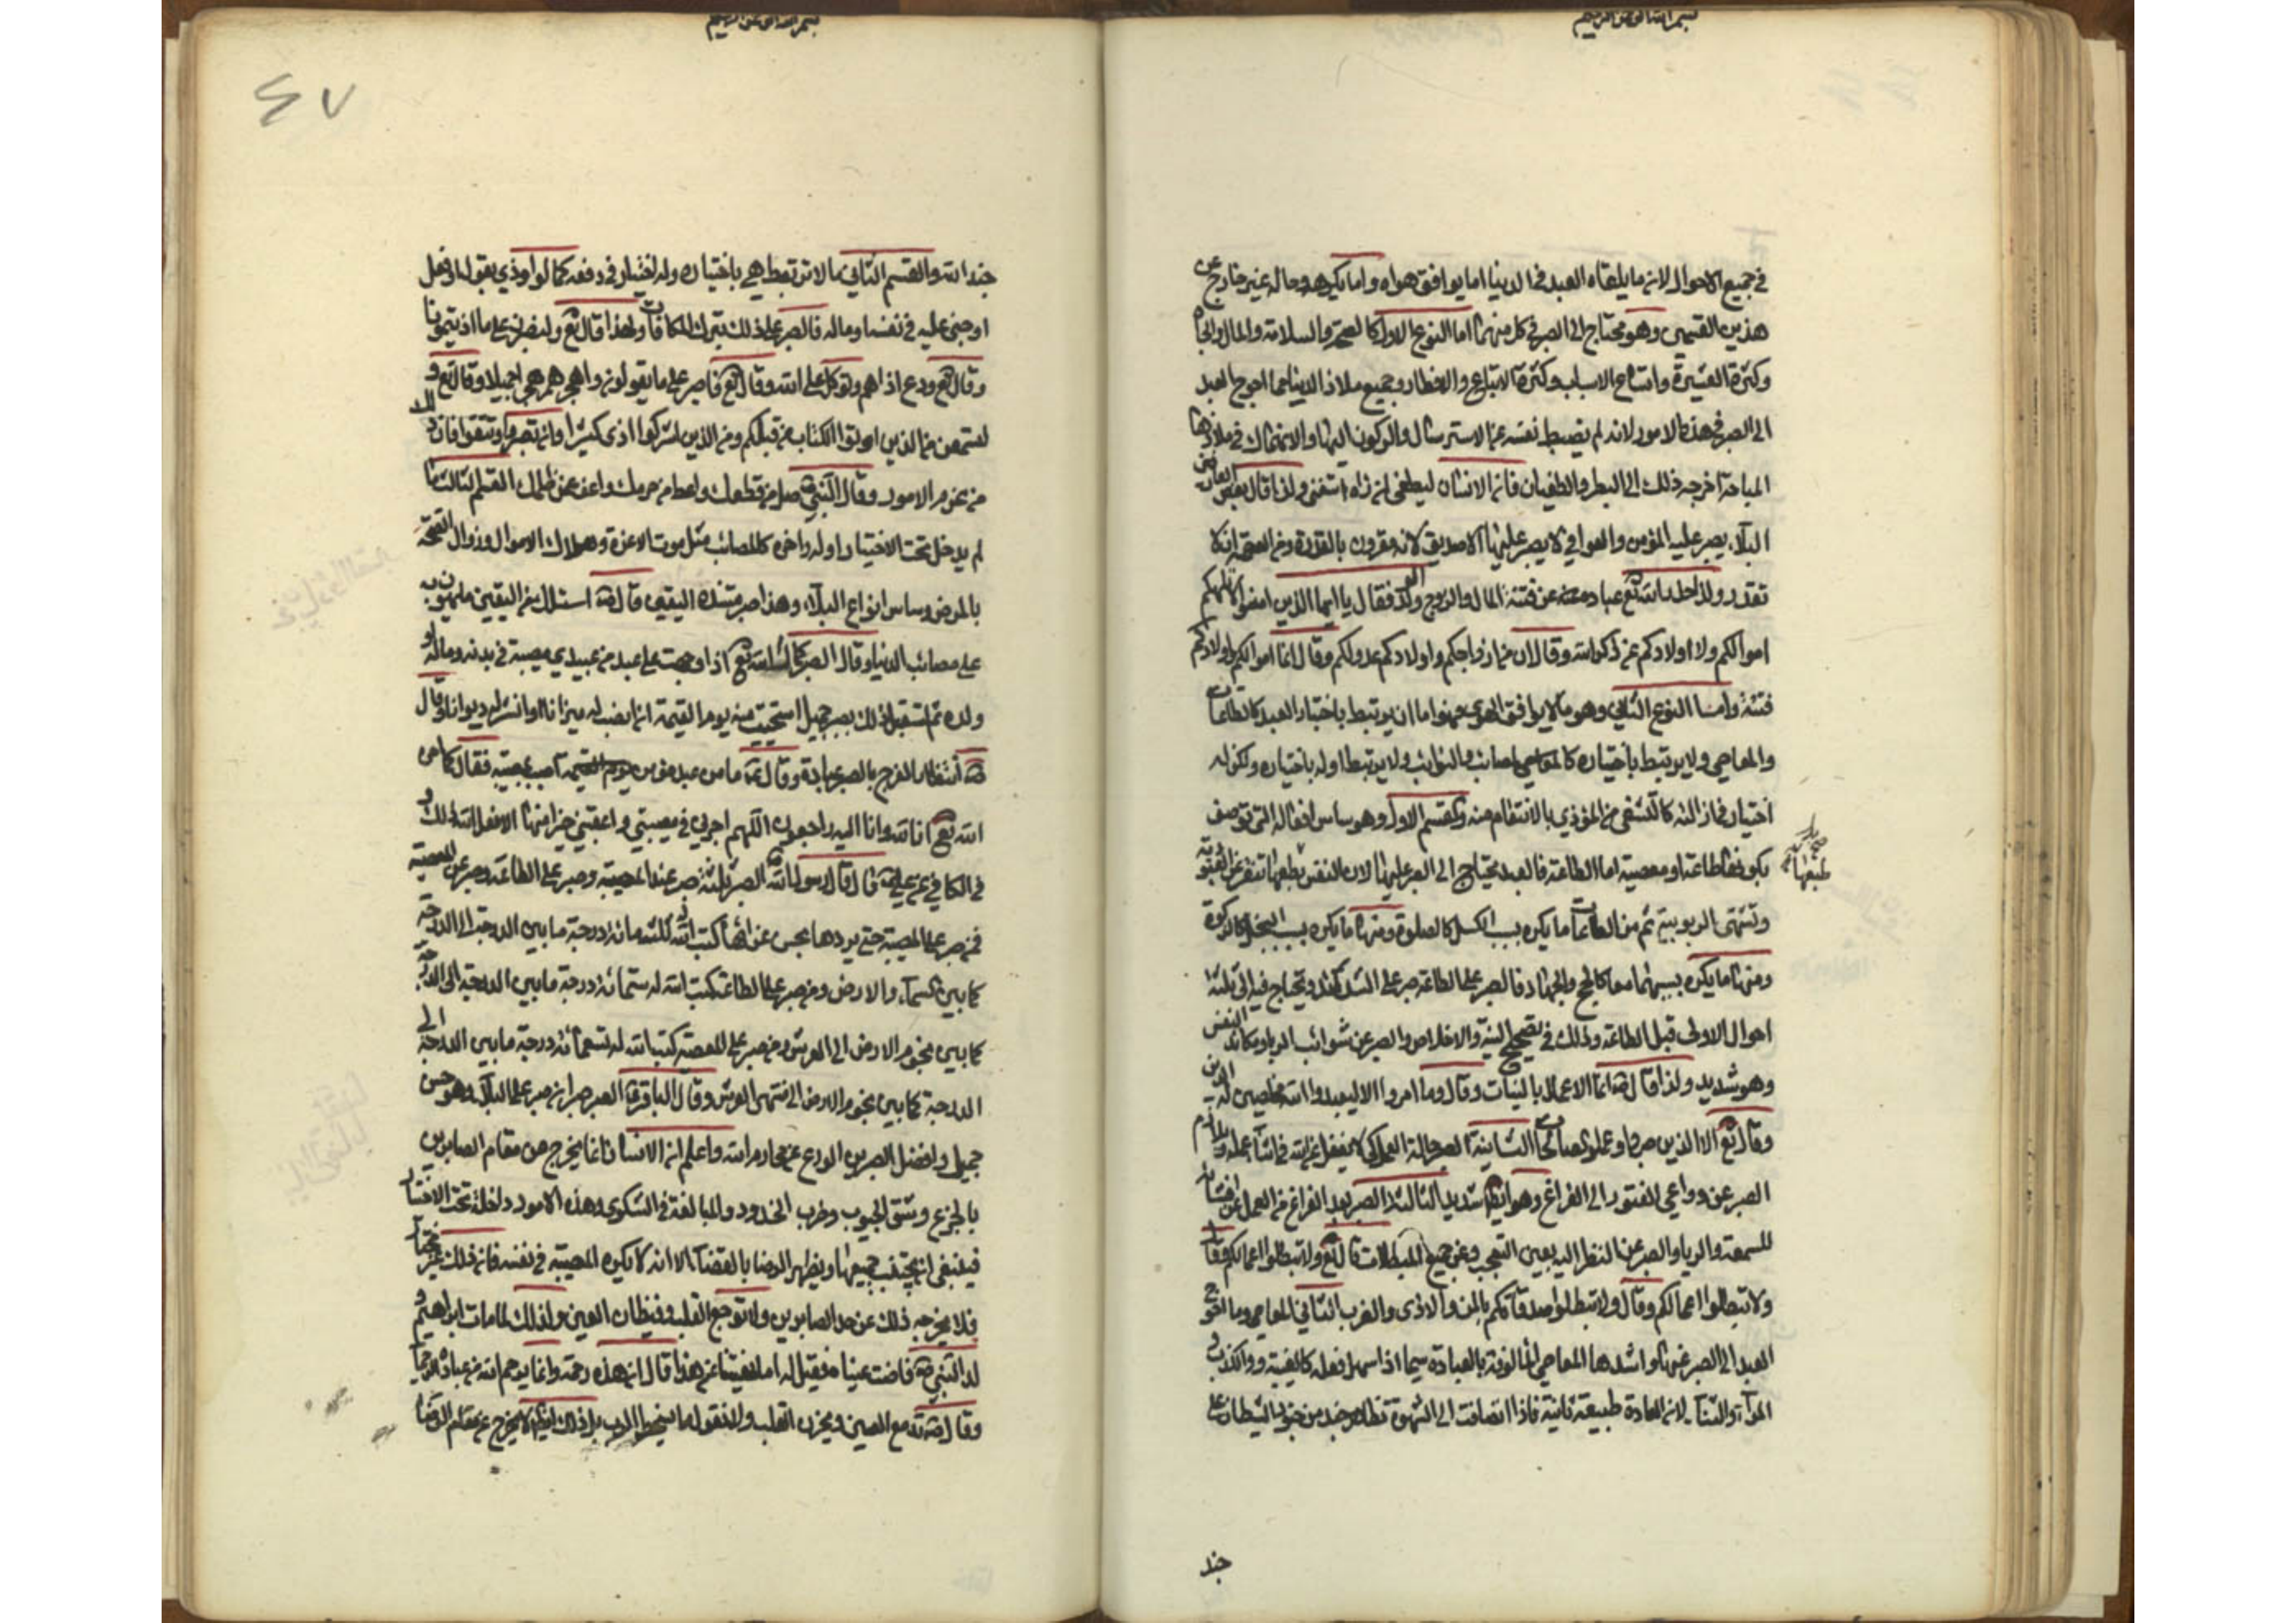 بسم الله الرحمن الرحيم
في جميع الاحوال لان ما يلقاه العبد في الدنيا اما يوافق هواه واما يكرهه وحاله غير خارج عن
هذين القسمين وهو محتاج الى الصبر في كل منهما اما النوع الاول كالصحة والسلامة والمال والجاه
وكثرة العشيرة واتساع الاسباب وكثرة الاتباع والانصار وجميع ملاذ الدنيا فما احوج العبد
الى الصبر في هذه الامور لانه لم يضبط نفسه عن الاسترسال والركون اليها والانهماك في ملاذها
المباحة اخرجه ذلك الى البطر والطغيان فان الانسان ليطغى ان راه استغنى ولذا قال بعض العارفين
البلاء يصبر عليه المؤمن والعوافي لا يصبر عليها الا صديق لانه مقرون بالقدرة ومن العصمة ان لا
تقدر ولذا حذر الله تع عباده عن فتنة المال والزوج والولد فقال يا ايها الذين امنوا لا تلهكم
اموالكم ولا اولادكم عن ذكر الله وقال ان من ازواجكم واولادكم عدو لكم وقال انما اموالكم واولادكم
فتنة واما النوع الثاني وهو ما لا يوافق الهوى فهو اما ان يرتبط باختيار العبد كالطاعات
والمعاصي ولا يرتبط باختياره كالمصائب والنوائب ولا يرتبط اوله باختياره ولكن له
اختيار في ازالته كالتشفي من المؤذي بالانتقام منه والقسم الاول وهو سائر افعاله التي توصف
بكونها طاعة او معصية اما الطاعة فالعبد يحتاج الى الصبر عليها لان النفس بطبعها تنفر عن العبودية
طبعها
وتشتهى الربوبية ثم من الطاعات ما يكره بسبب الكسل كالصلوة ومنها ما يكره بسبب البخل كالزكوة
ومنها ما يكره بسببهما معا كالحج والجهاد فالصبر على الطاعة صبر على الشدائد ويحتاج فيه الى ثلثة
احوال الاولى قبل الطاعة وذلك في تصحيح النية والاخلاص والصبر عن شوائب الرياء ومكائد النفس
وهو شديد ولذا قال ص انما الاعمال بالنيات وقال وما امروا الا ليعبدوا الله مخلصين له الدين
وقال تع الا الذين صبروا وعملوا الصالحات الثانية حالة العمل كي لا يغفل عن الله في اثناء عمله ويلازم
الصبر عن دواعي الفتور الى الفراغ وهو ايضا شديد الثالثة الصبر بعد الفراغ من العمل عن افشائه
للسمعة والرياء والصبر عن النظر اليه بعين التعجب وعن جميع المبطلات قال تع ولا تبطلوا اعمالكم وقال
ولا تبطلوا اعمالكم وقال ولا تبطلوا صدقاتكم بالمن والاذى والضرب الثاني المعاصي وما احوج
العبد الى الصبر عنها واشدها المعاصي المألوفة بالعبادة سيما اذا سهل فعله كالغيبة والكذب و
المراء والثناء لان العادة طبيعة ثانية فاذا انضافت الى الشهوة تظاهر جند من جنود الشيطان على
جند
بسم الله الرحمن الرحيم
٤٧
جند الله والقسم الثاني ما لا يرتبط باختياره وله اختيار في دفعه كما لو اوذي بقول او فعل
او جنى عليه في نفسه او ماله فالصبر على ذلك بترك المكافات ولهذا قال تع ولنصبرن على ما اذيتمونا
وقال تع ودع اذاهم وتوكل على الله وقال تع فاصبر على ما يقولون واهجرهم هجرا جميلا وقال تع و
لتسمعن من الذين اوتوا الكتاب من قبلكم ومن الذين اشركوا اذى كثيرا وان تصبروا وتتقوا فان ذلك
من عزم الامور وقال النبي ص صل من قطعك واعط من حرمك واعف عمن ظلمك القسم الثالث ما
لم يدخل تحت الاختيار اوله واخره كالمصائب مثل موت الاعزة وهلاك الاموال وزوال الصحة
بالمرض وسائر انواع البلاء وهذا صبر مستنده اليقين قال ص اسئلك من اليقين ما يهون به
على مصائب الدنيا وقال ص قال الله تع اذا وجهت على عبد من عبيدي مصيبة في بدنه او ماله او
ولده ثم استقبل ذلك بصبر جميل استحييت منه يوم القيمة ان انصب له ميزانا او انشر له ديوانا وقال
ص انتظار الفرج بالصبر عبادة وقال ص ما من عبد مؤمن اصيب بمصيبة فقال كما امر
الله تع انا لله وانا اليه راجعون اللهم اجرني في مصيبتي واعقبني خيرا منها الا فعل الله ذلك و
في الكافي عن علي ع قال قال رسول الله ص الصبر ثلثة صبر عند المصيبة وصبر على الطاعة وصبر عن المعصية
فمن صبر على المصيبة حتى يردها بحسن عزائها كتب الله له ثلثمائة درجة ما بين الدرجة الى الدرجة
كما بين السماء والارض ومن صبر على الطاعة كتب الله له ستمائة درجة ما بين الدرجة الى الدرجة
كما بين تخوم الارض الى العرش ومن صبر على المعصية كتب الله له تسعمائة درجة ما بين الدرجة الى
الدرجة كما بين تخوم الارض الى منتهى العرش وقال الباقر ع الصبر صبران صبر على البلاء وهو حسن
جميل وافضل الصبرين الورع عن محارم الله واعلم ان الانسان انما يخرج عن مقام الصابرين
بالجزع وشق الجيوب وضرب الخدود والمبالغة في الشكوى وهذه الامور داخلة تحت الاختيار
فينبغي ان يجتنب جميعها ويظهر الرضا بالقضاء الا انه لا يكره المصيبة في نفسه فان ذلك غير مختار
فلا يخرجه ذلك عن حد الصابرين ولا توجع القلب وفيضان العين ولذلك لما مات ابراهيم و
لد النبي ص فاضت عيناه فقيل له اما نهيتنا عن هذا قال ان هذه رحمة وانما يرحم الله من عباده الرحماء
وقال ص تدمع العين ويحزن القلب ولا نقول ما يسخط الرب بل ذلك ايضا لا يخرج عن مقام الرضا